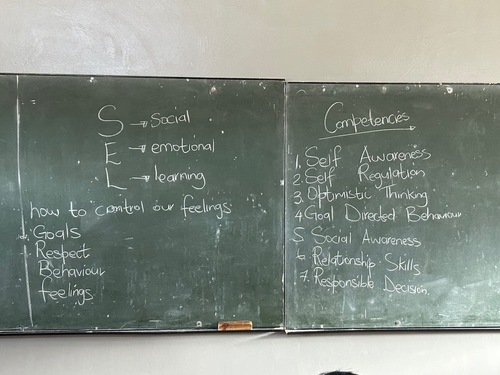 S → social
E → emotional
L → learning
how to control our feelings
Goals
Respect
Behaviour
feelings
Competencies
1. Self Awareness
2. Self Regulation
3. Optimistic Thinking
4 Goal Directed Behaviour
5 Social Awareness
6 Relationship Skills
7. Responsible Decision.